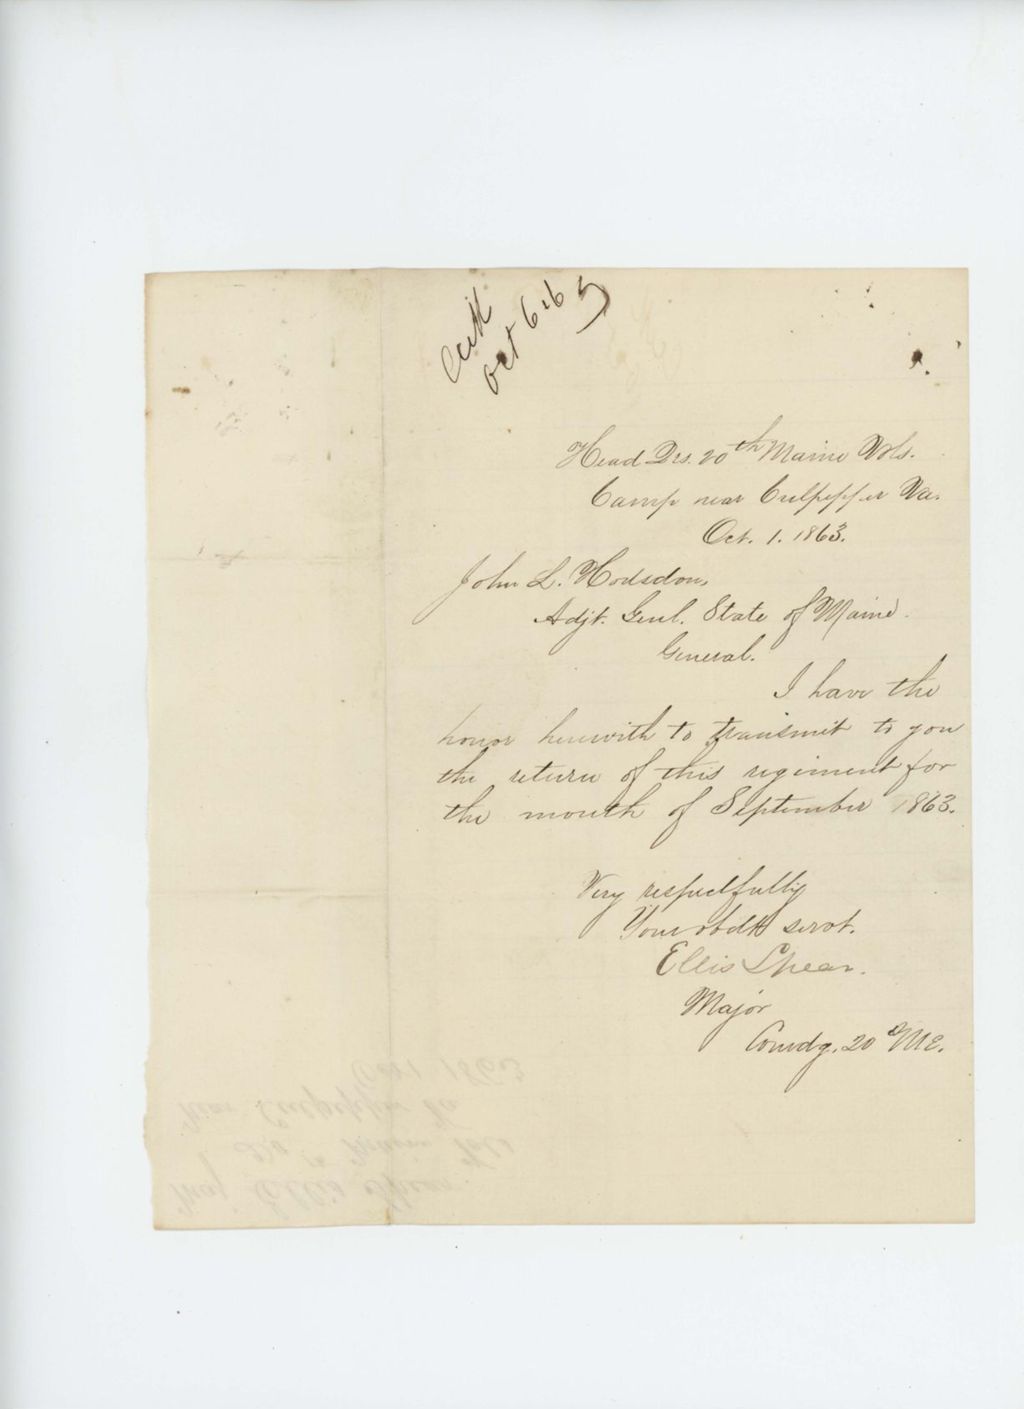 Ack
Oct 6. 63
Head Qrs. 20th Maine Vols.
Camp near Culpepper Va.
Oct. 1. 1863.
John L. Hodsdon,
Adjt. Genl. State of Maine.
General.
I have the
honor herewith to transmit to you
the return of this regiment for
the month of September 1863.
Very respectfully
Your obdt servt.
Ellis Spear.
Major
Comdg. 20th ME.
Maj Ellis Spear
20th Maine Vols
Near Culpepper Va
Oct 1 1863